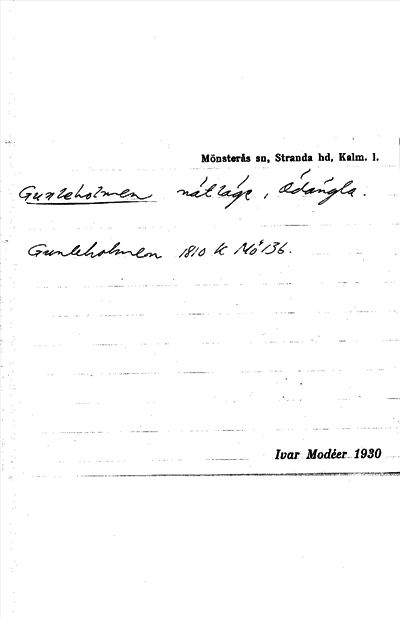 Mönsterås sn, Stranda hd, Kalm. l.
Gunleholmen nätläge, Ödängla.
Gunleholmen 1810 K Mö 136.
Ivar Modéer 1930